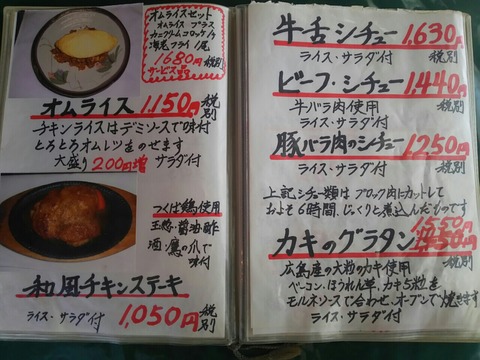 オムライスセット
オムライス プラス
カニクリームコロッケ1ケ
海老フライ1尾
1680円 税別
サービス品
オムライス 1,150円 税別
チキンライスはデミソースで味付
とろとろオムレツをのせます
大盛り200円増 サラダ付
つくば鶏使用
玉葱・醤油・酢
酒・鷹の爪で
味付
和風チキンステーキ
ライス・サラダ付 1,050円 税別
牛舌シチュー 1,630円
ライス・サラダ付 税別
ビーフ・シチュー 1,440円
牛バラ肉使用 税別
ライス・サラダ付
豚バラ肉のシチュー 1250円
ライス・サラダ付 税別
上記シチュー類はブロック肉にカットして
およそ6時間、じっくりと煮込んだものです
カキのグラタン
広島産の大粒のカキ使用
ベーコン・ほうれん草、カキ5粒を
モルネソースで合わせ、オーブンで焼きます
ライス・サラダ付